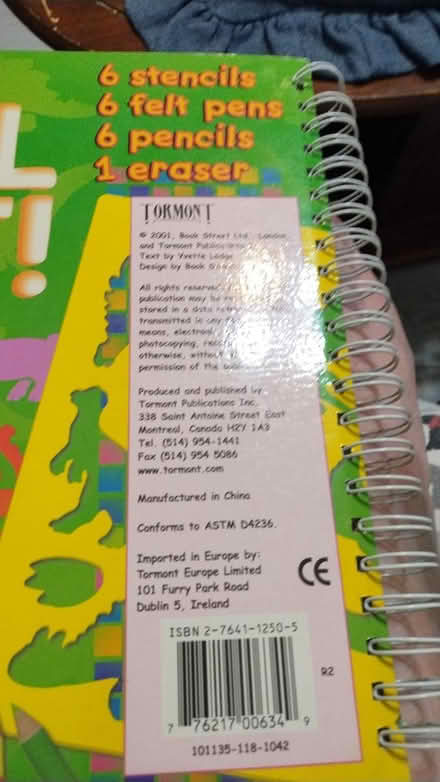 6 stencils
6 felt pens
6 pencils
1 eraser
L
!
TORMONT
© 2001, Book Street Ltd., London,
and Tormont Publications
Text by Yvette Lodge
Design by Book
All rights reserved
publication may be
stored in a data
transmitted in any
means, electronic,
photocopying,
otherwise, without
permission of the
Produced and published by:
Tormont Publications Inc.
338 Saint Antoine Street East
Montreal, Canada H2Y 1A3
Tel. (514) 954-1441
Fax (514) 954 5086
www.tormont.com
Manufactured in China
Conforms to ASTM D4236.
Imported in Europe by:
Tormont Europe Limited
101 Furry Park Road
Dublin 5, Ireland
CE
ISBN 2-7641-1250-5
R2
7 76217 00634 9
101135-118-1042